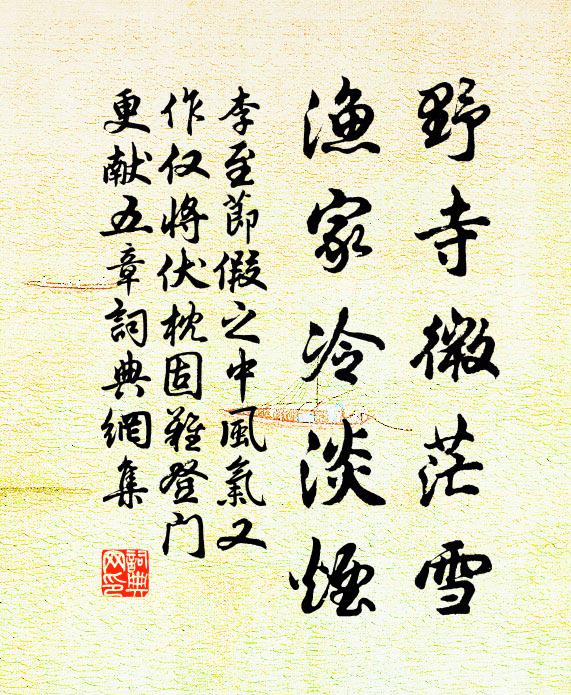 野寺微茫雪
漁家冷淡煙
李至節假之中風氣又
作仅將伏枕固難登门
更献五章詞典網集
詞典网印